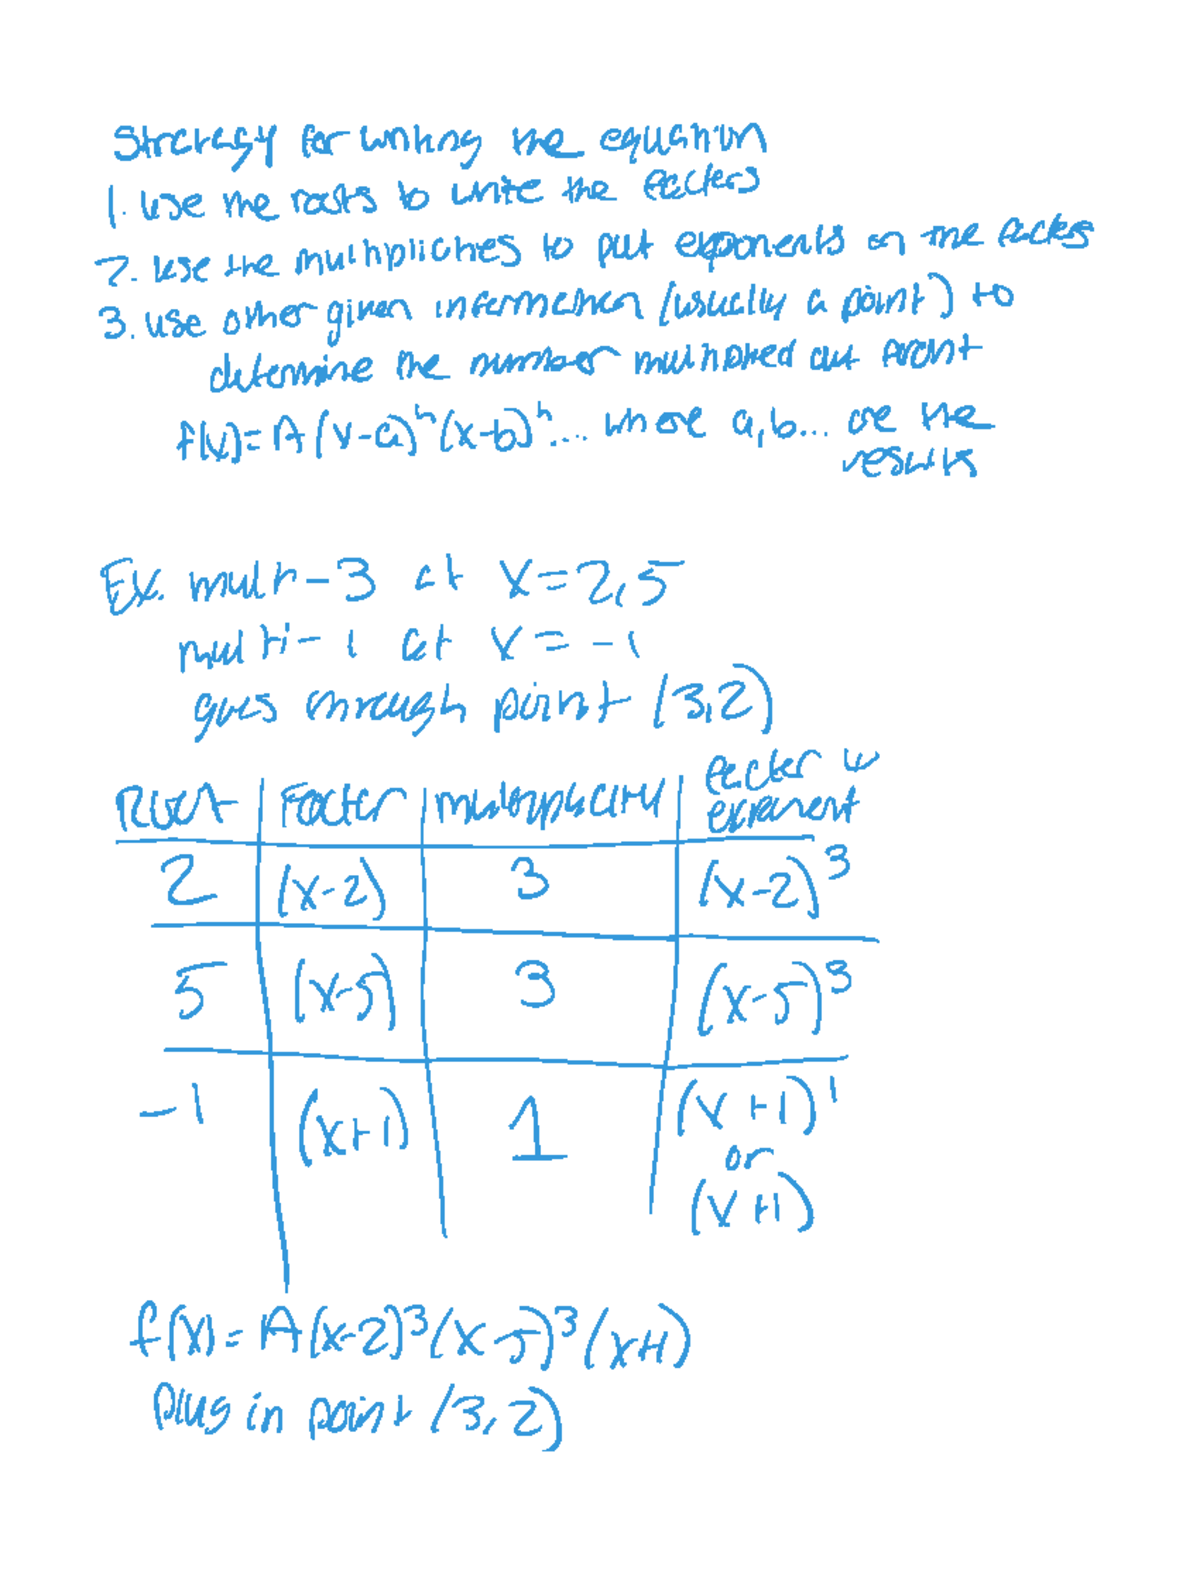 Strategy for writing the equation
1. use the roots to write the factors
2. use the multiplicities to put exponents on the factors
3. use other given information (usually a point) to
determine the number multiplied out front
f(x)=A(x-a)ⁿ(x-b)ⁿ.... where a,b... are the
results
Ex. multi-3 at x=2,5
multi-1 at x=-1
goes through point (3,2)
Root Factor multiplicity factor w
exponent
2 (x-2) 3 (x-2)³
5 (x-5) 3 (x-5)³
-1 (x+1) 1 (x+1)¹
or
(x+1)
f(x)=A(x-2)³(x-5)³(x+1)
Plug in point (3,2)